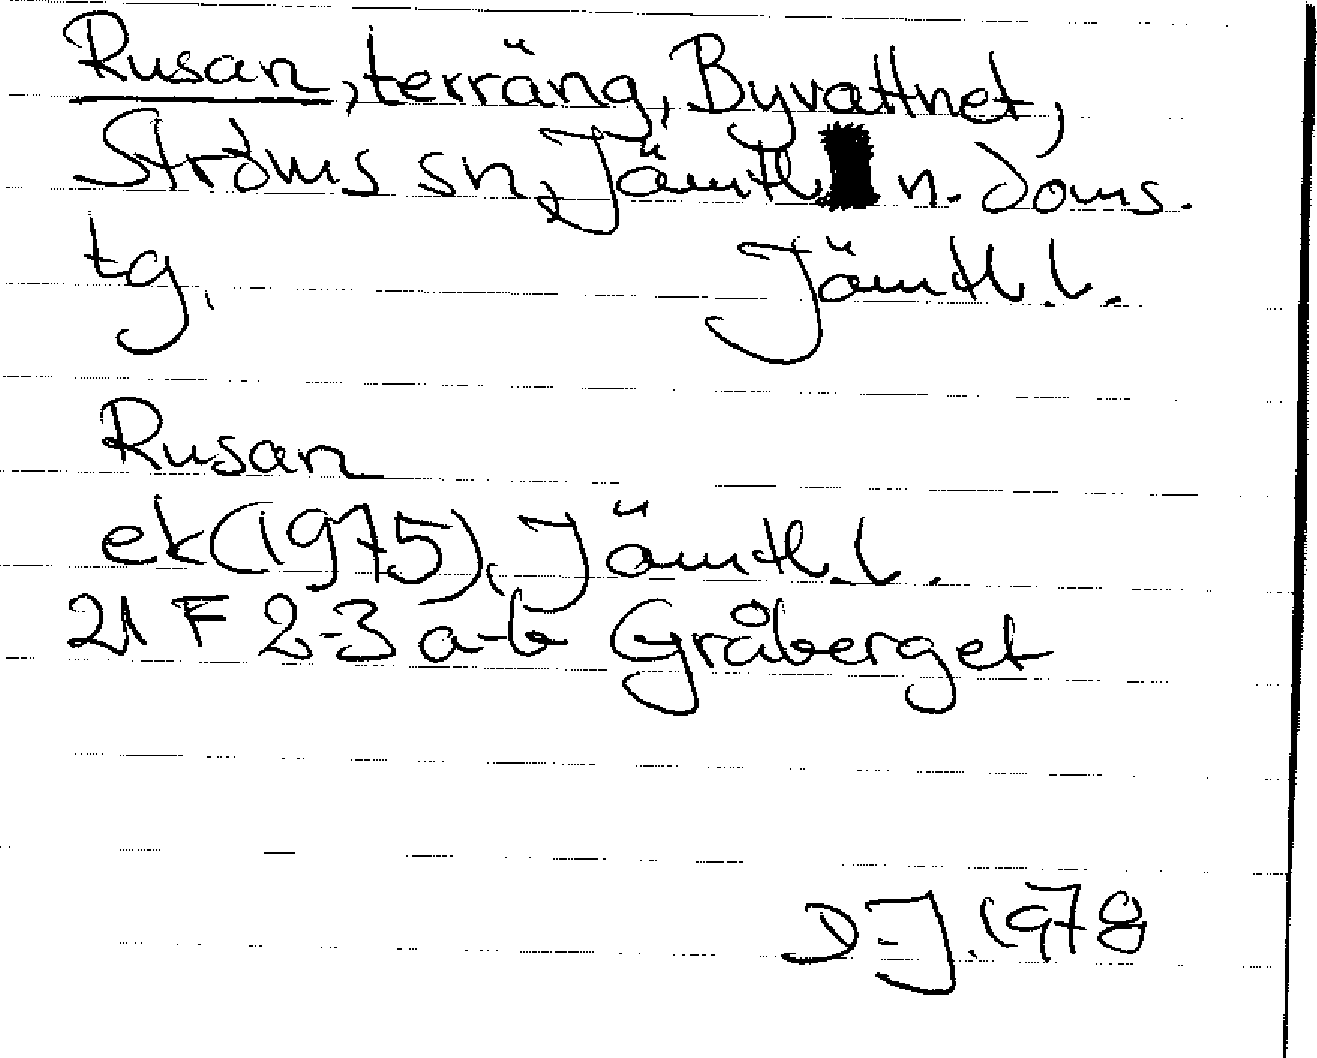 Rusan, terräng, Byvattnet,
Ströms sn, Jämtl n. doms.
tg. Jämtl. l.
Rusan
ek (1975), Jämtl. l.
21 F 2-3 a-b Gråberget
D-J. 1978